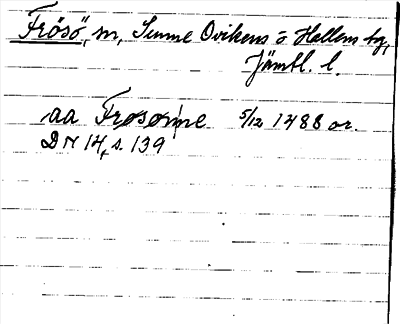 Frösö, sn, Sunne Ovikens o Hallens tg,
Jämtl. l.
aa Frosonne 5/12 1488 or.
DN 14, s. 139